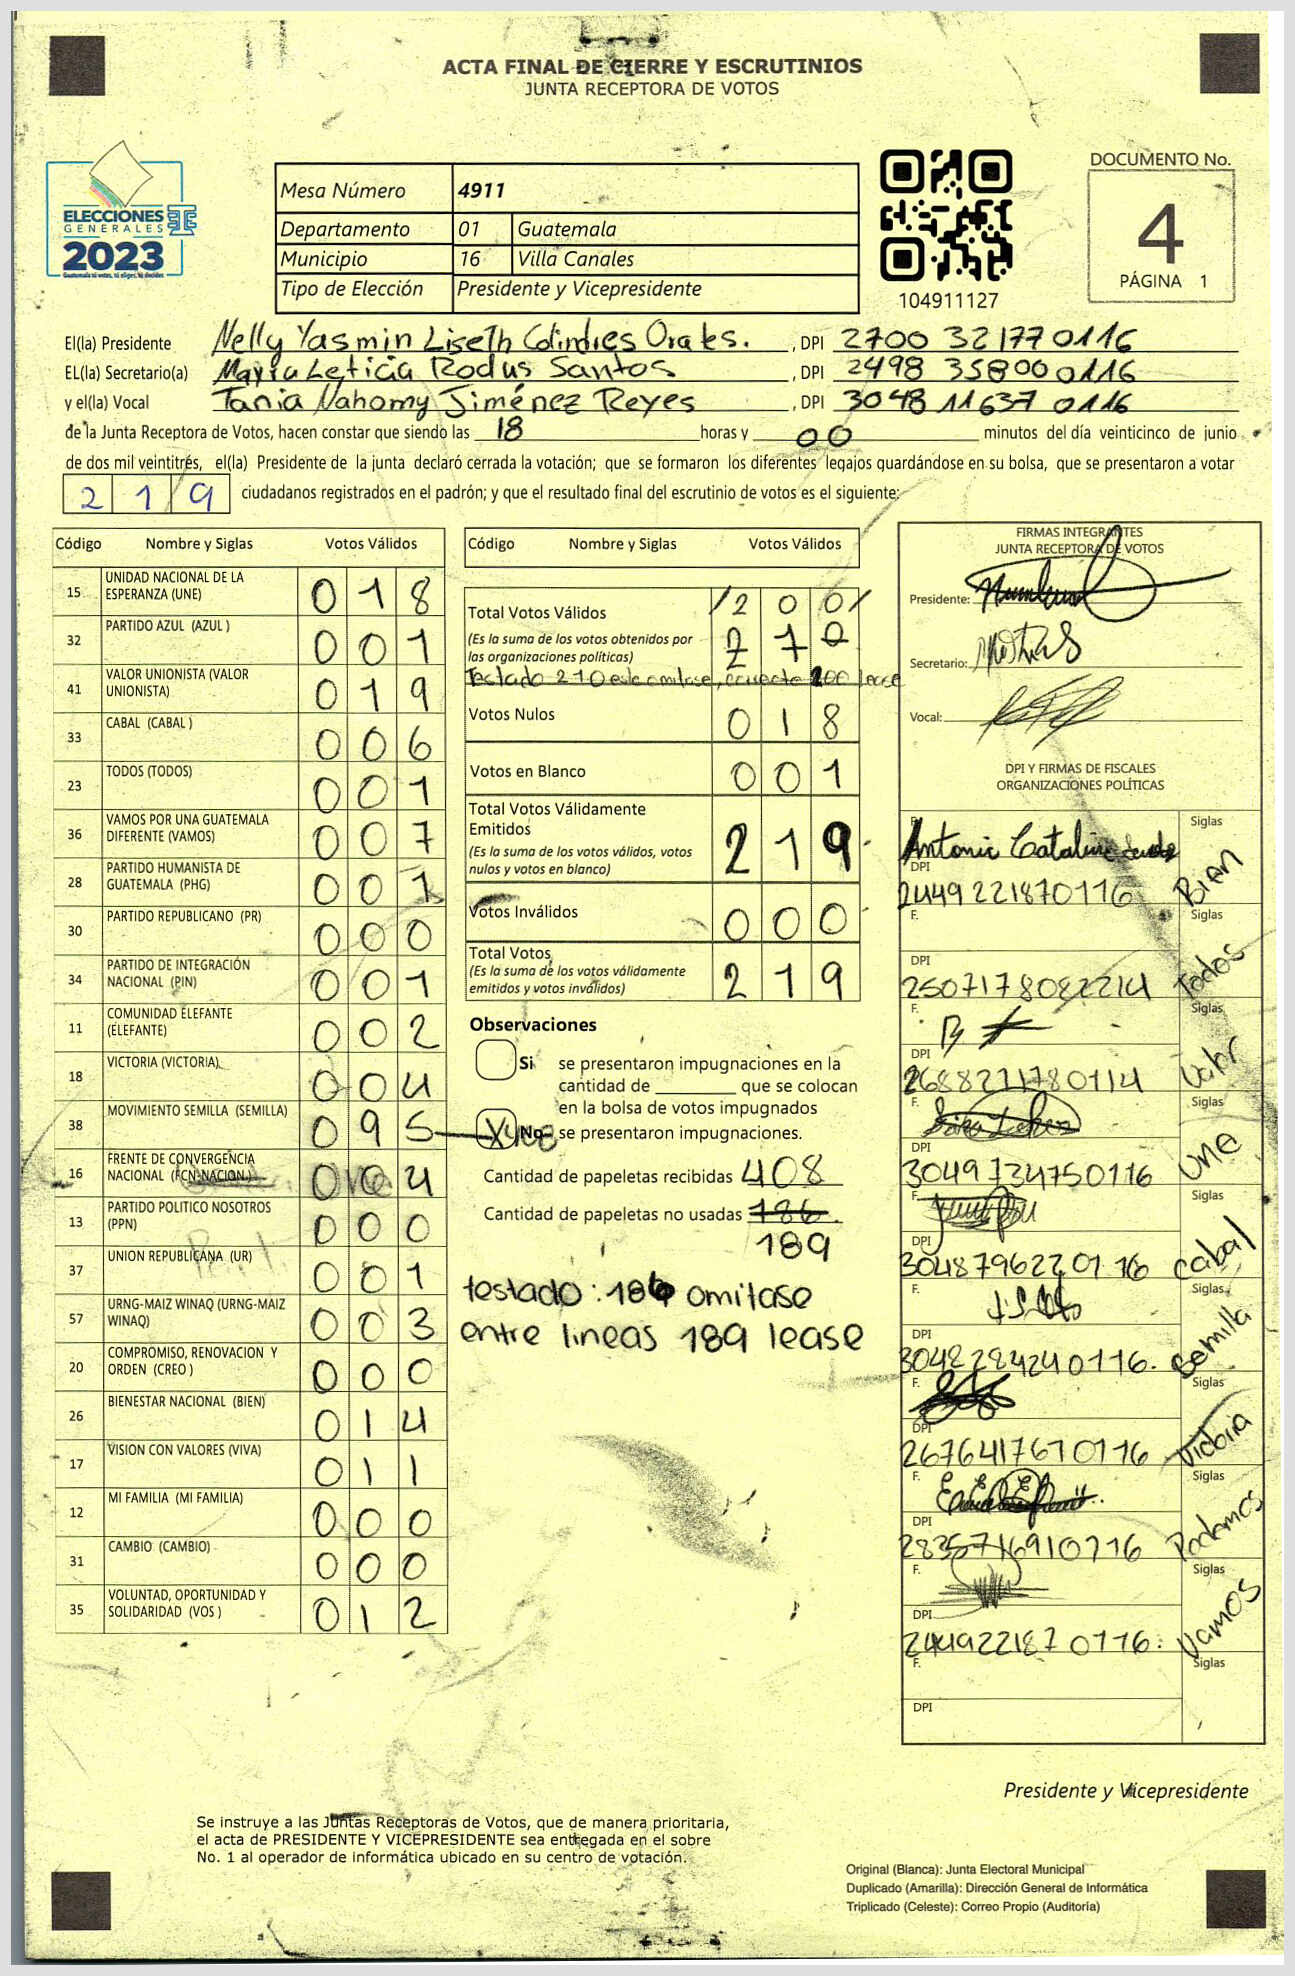 ACTA FINAL DE CIERRE Y ESCRUTINIOS
JUNTA RECEPTORA DE VOTOS
ELECCIONES
GENERALES
2023
Guatemala tú votas, tú eliges, tú decides
Mesa Número 4911
Departamento 01 Guatemala
Municipio 16 Villa Canales
Tipo de Elección Presidente y Vicepresidente
104911127
DOCUMENTO No.
4
PÁGINA 1
El(la) Presidente Nelly Yasmin Liseth Colindres , DPI 2700 32177 0116
EL(la) Secretario(a) María Leticia Rodus Santos , DPI 2498 35800 0116
y el(la) Vocal Tania Nahomy Jiménez Reyes , DPI 3048 11637 0116
de la Junta Receptora de Votos, hacen constar que siendo las 18 horas y 00 minutos del día veinticinco de junio
de dos mil veintitrés, el(la) Presidente de la junta declaró cerrada la votación; que se formaron los diferentes legajos guardándose en su bolsa, que se presentaron a votar
219 ciudadanos registrados en el padrón; y que el resultado final del escrutinio de votos es el siguiente:
Código Nombre y Siglas Votos Válidos
15 UNIDAD NACIONAL DE LA ESPERANZA (UNE) 018
32 PARTIDO AZUL (AZUL ) 001
41 VALOR UNIONISTA (VALOR UNIONISTA) 019
33 CABAL (CABAL ) 006
23 TODOS (TODOS) 001
36 VAMOS POR UNA GUATEMALA DIFERENTE (VAMOS) 007
28 PARTIDO HUMANISTA DE GUATEMALA (PHG) 001
30 PARTIDO REPUBLICANO (PR) 000
34 PARTIDO DE INTEGRACIÓN NACIONAL (PIN) 001
11 COMUNIDAD ELEFANTE (ELEFANTE) 002
18 VICTORIA (VICTORIA) 004
38 MOVIMIENTO SEMILLA (SEMILLA) 095
16 FRENTE DE CONVERGENCIA NACIONAL (FCN-NACION ) 004
13 PARTIDO POLITICO NOSOTROS (PPN) 000
37 UNION REPUBLICANA (UR) 001
57 URNG-MAIZ WINAQ (URNG-MAIZ WINAQ) 003
20 COMPROMISO, RENOVACION Y ORDEN (CREO ) 000
26 BIENESTAR NACIONAL (BIEN) 014
17 VISION CON VALORES (VIVA) 011
12 MI FAMILIA (MI FAMILIA) 000
31 CAMBIO (CAMBIO) 000
35 VOLUNTAD, OPORTUNIDAD Y SOLIDARIDAD (VOS ) 012
Código Nombre y Siglas Votos Válidos
Total Votos Válidos /200/
(Es la suma de los votos obtenidos por las organizaciones políticas) 210
Testado 210 este omitase, correcto 200 lease
Votos Nulos 018
Votos en Blanco 001
Total Votos Válidamente Emitidos 219
(Es la suma de los votos válidos, votos nulos y votos en blanco)
Votos Inválidos 000
Total Votos 219
(Es la suma de los votos válidamente emitidos y votos inválidos)
Observaciones
Si se presentaron impugnaciones en la
cantidad de ________ que se colocan
en la bolsa de votos impugnados
X No se presentaron impugnaciones.
Cantidad de papeletas recibidas 408
Cantidad de papeletas no usadas 186
189
testado: 186 omitase
entre lineas 189 lease
FIRMAS INTEGRANTES
JUNTA RECEPTORA DE VOTOS
Presidente:
Secretario:
Vocal:
DPI Y FIRMAS DE FISCALES
ORGANIZACIONES POLÍTICAS
F. Antonio Catalino Siglas
DPI 2449221870116 Bien
F. Siglas
DPI 2507178082214 Todos
F. Siglas
DPI 2688271780114 Valor
F. Siglas
DPI 3049734750116 UNE
F. Siglas
DPI 3048796220116 Cabal
F. Siglas
DPI 3042284240116. Semilla
F. Siglas
DPI 2676417670116 Victoria
F. Siglas
DPI 2835716910116 Podemos
F. Siglas
DPI 2449221870116. Vamos
F. Siglas
DPI
Presidente y Vicepresidente
Se instruye a las Juntas Receptoras de Votos, que de manera prioritaria,
el acta de PRESIDENTE Y VICEPRESIDENTE sea entregada en el sobre
No. 1 al operador de informática ubicado en su centro de votación.
Original (Blanca): Junta Electoral Municipal
Duplicado (Amarilla): Dirección General de Informática
Triplicado (Celeste): Correo Propio (Auditoría)